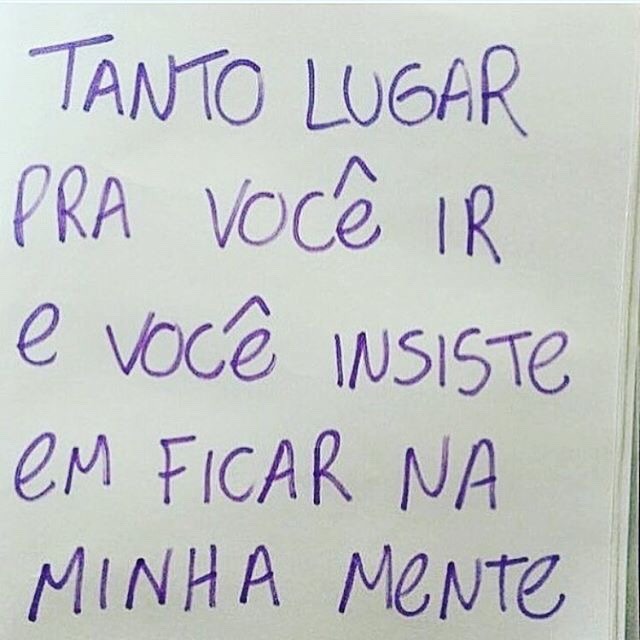 TANTO LUGAR
PRA VOCÊ IR
e VOCÊ INSISTe
eM FICAR NA
MINHA MeNTe